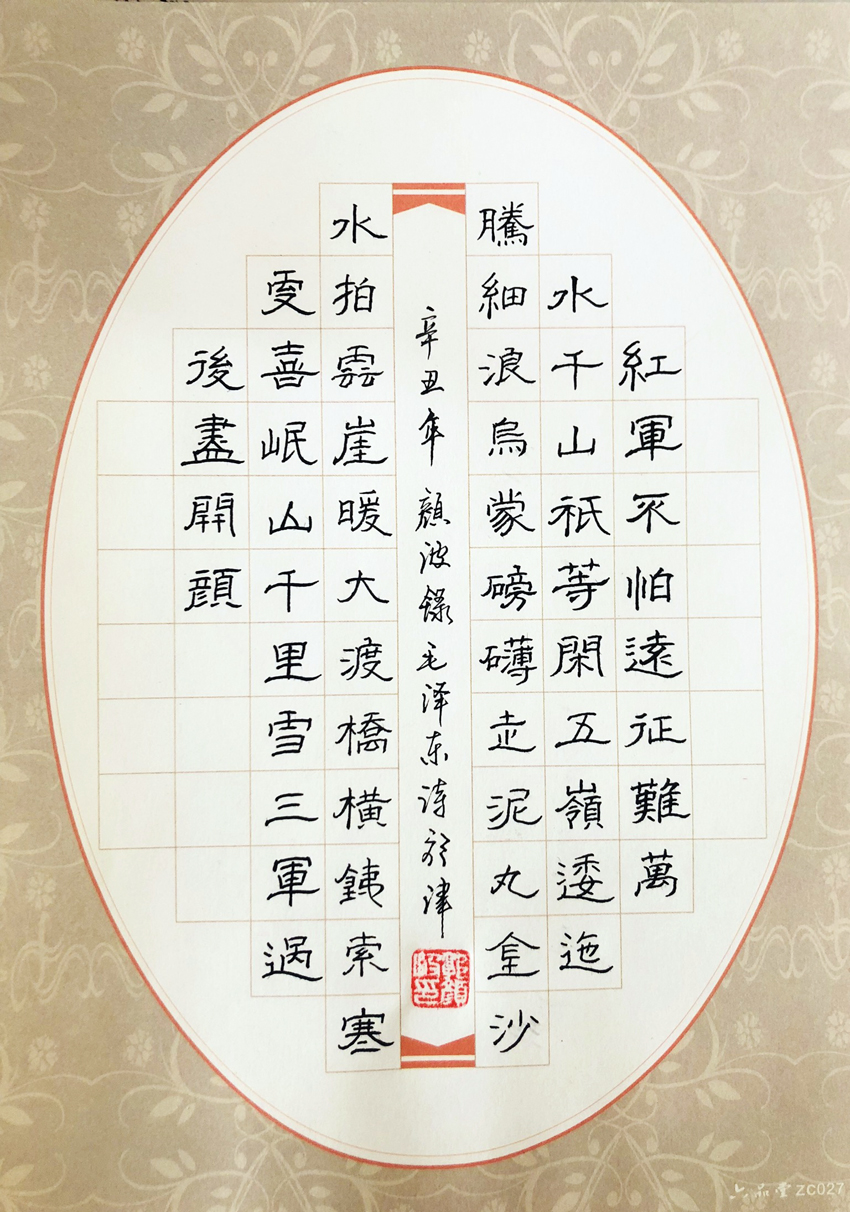 紅軍不怕遠征難萬
水千山祇等閑五嶺逶迤
騰細浪烏蒙磅礴走泥丸金沙
辛丑年 顏波錄毛泽东诗於津
水拍雲崖暖大渡橋橫銕索寒
更喜岷山千里雪三軍過
後盡開顏
六品堂 ZC027